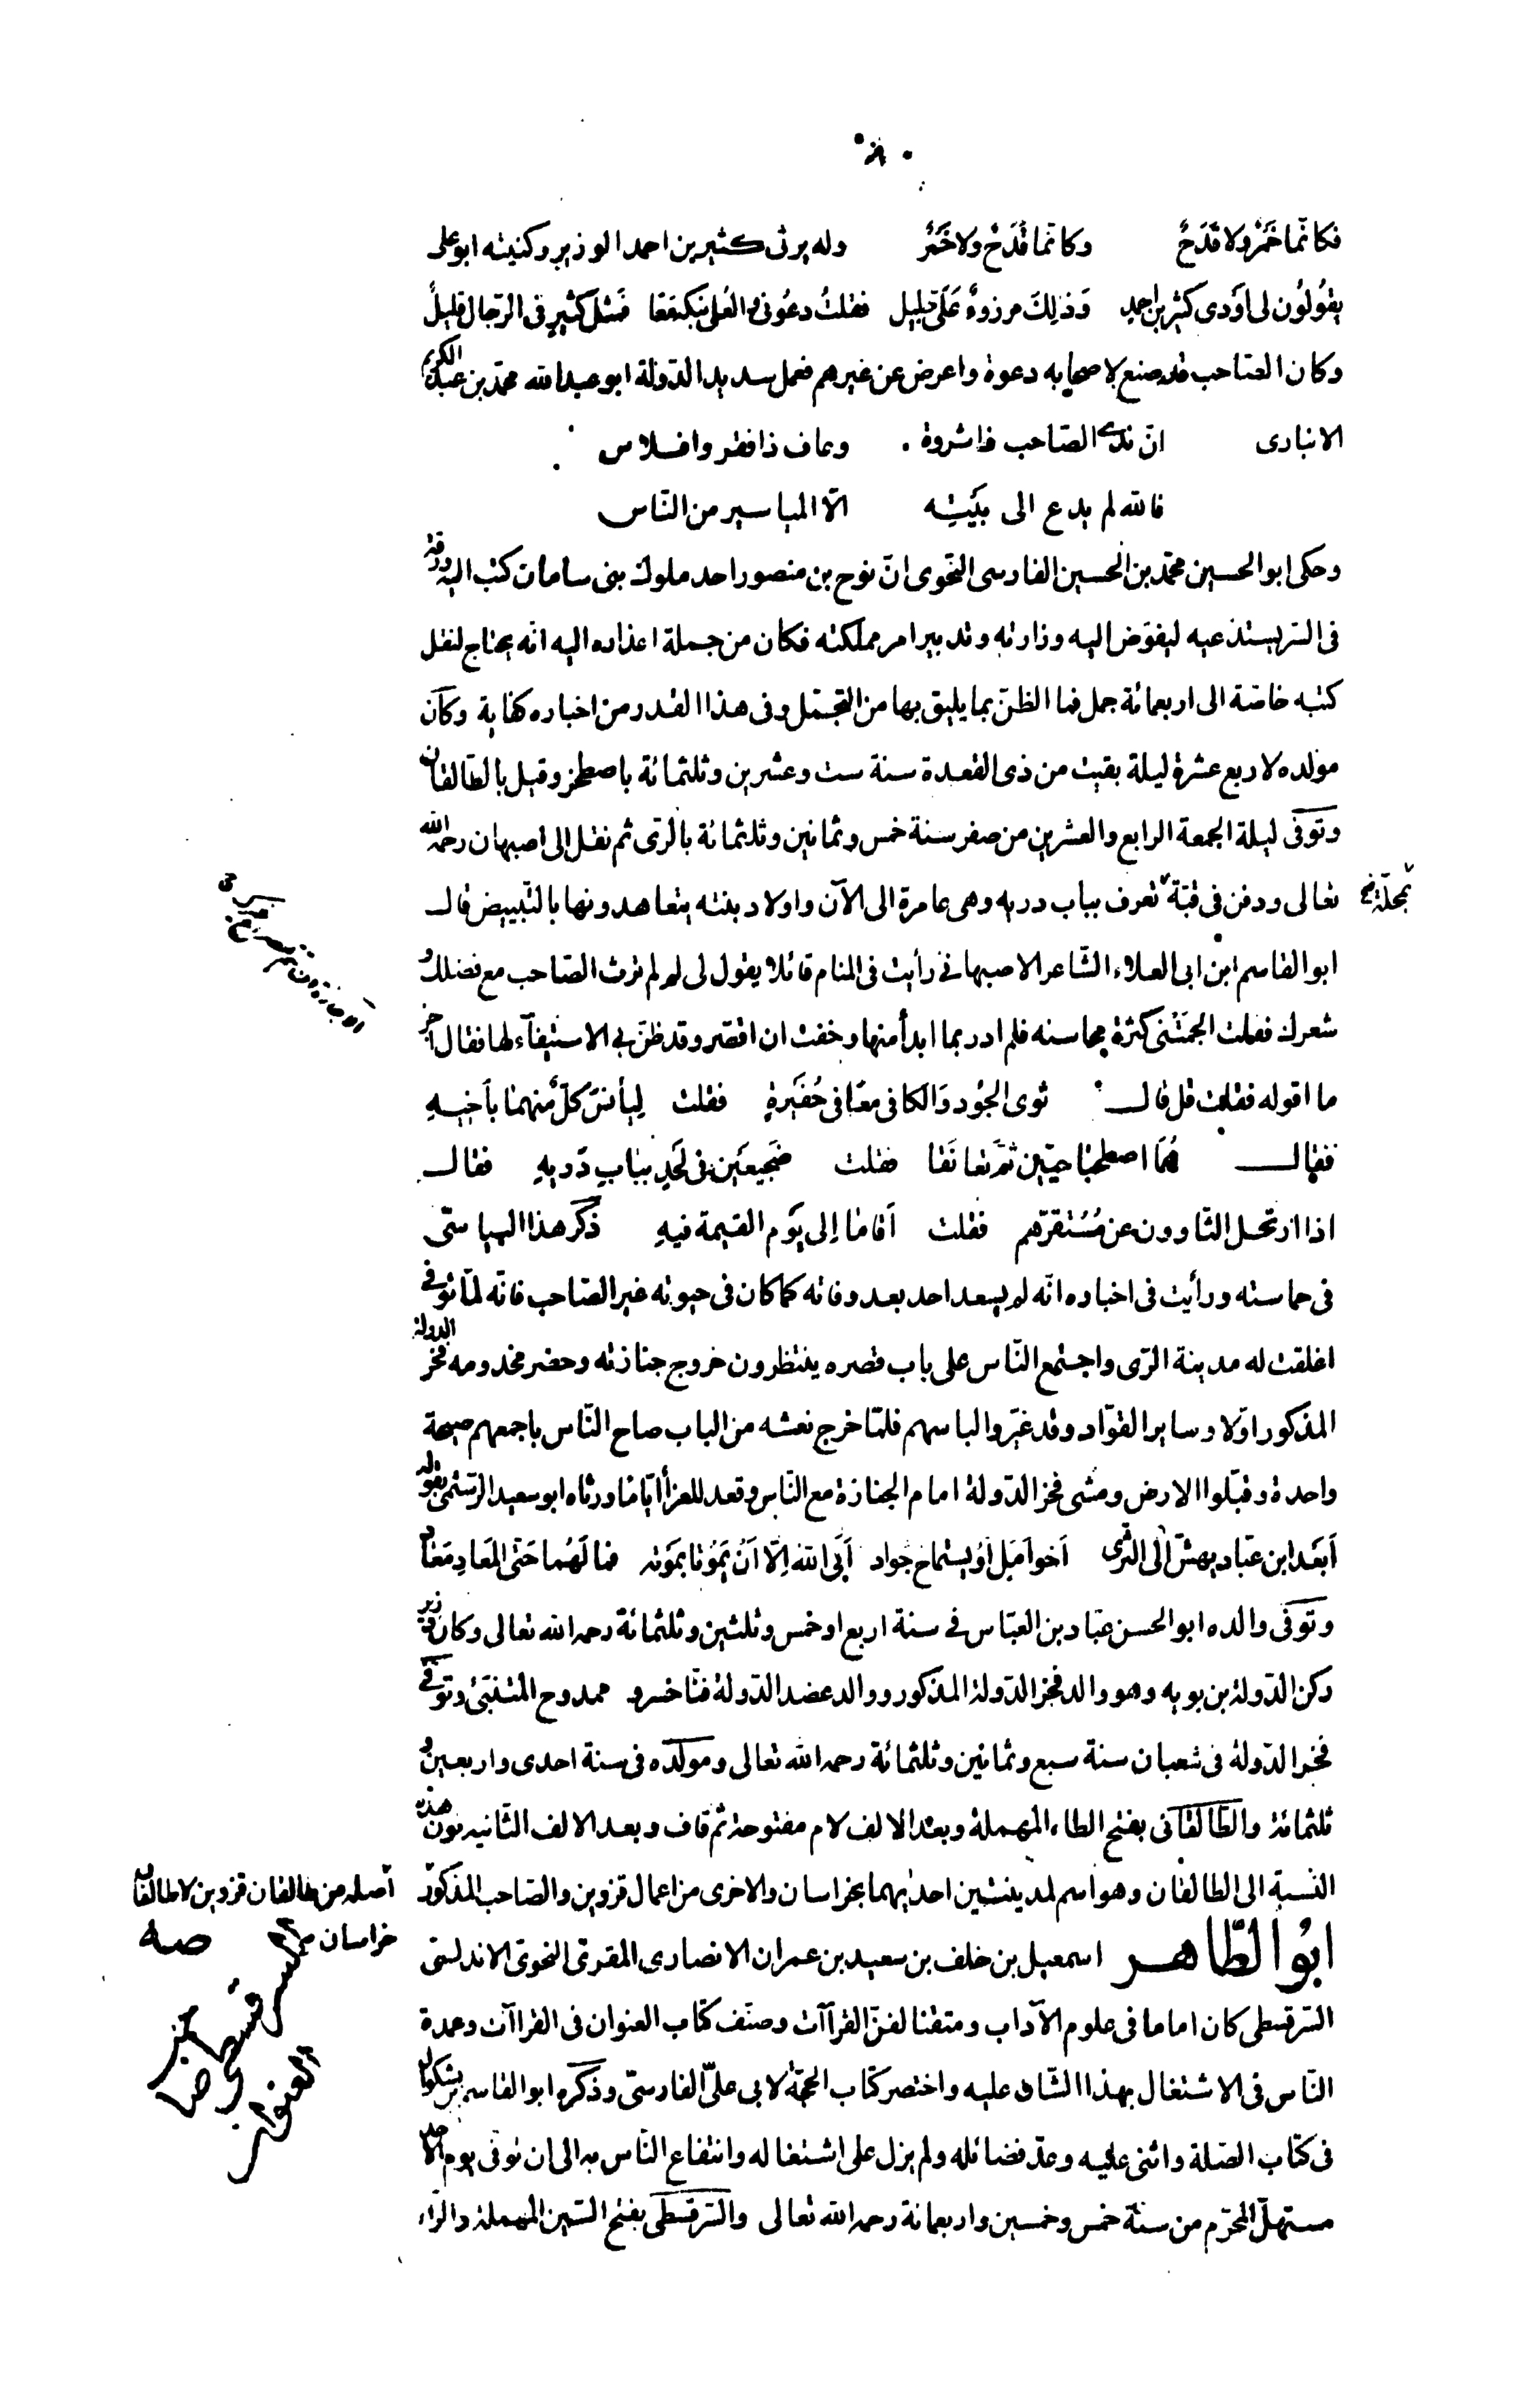 فكانّما خَمْرٌ ولا قَدَحٌ وكانّما قَدَحٌ ولا خَمْرٌ وله يرثى كثير بن احمد الوزير وكنيته ابو على
يقُولُون لى اَوْدى كثير بن احمد وَذٰلِكَ مرزوءٌ عَلَىّ جليل فقلتُ دعُونى والعُلى نبكه مَعًا فمثل كثيرٍ فى الرّجال قليلُ
وكان الصّاحب قد صنع لاصحابه دعوة واعرض عن غيرهم فعمل سديد الدّولة ابو عبد الله محمّد بن عبد الكريم
الانبارى انّ ندى الصّاحب ذا ثروة وعاف ذا فقر وافلاس
فالله لم يدع الى بَيْتِه الّا المياسير من النّاس
وحكى ابو الحسين محمّد بن الحسين الفارسى النّحوى انّ نوح بن منصور احد ملوك بنى سامان كتب اليه ورقة
فى السّر يستدعيه ليفوّض اليه وزارته وتدبير امر مملكته فكان من جملة اعذاره اليه انّه يحتاج لنقل
كتبه خاصّة الى اربعمائة جمل فما الظنّ بما يليق بها من التجمّل وفى هذا القدر من اخباره كفاية وكان
مولده لاربع عشرة ليلة بقيت من ذى القعدة سنة ست وعشرين وثلثمائة باصطخر وقيل بالطّالقان
وتوفّى ليلة الجمعة الرابع والعشرين من صفر سنة خمس وثمانين وثلثمائة بالرّى ثم نقل الى اصبهان رحمه الله
تعالى ودفن فى قبّة تعرف بباب دريه وهى عامرة الى الآن واولاد بنته يتعاهدونها بالتّبييض قال
بمحلّة
ابو القاسم ابن ابى العلاء الشّاعر الاصبهانى رأيت فى المنام قائلا يقول لى لم لم ترث الصّاحب مع فضلك و
شعرك فقلت الجمتنى كثرة محاسنه فلم ادر بما ابدأ منها وخفت ان اقصّر وقد ظنّ بى الاستيفآء لها فقال اجز
ما اقوله فقلت قل قال ثوى الجُود وَالكافى معًا فى حُفَيرةٍ فقلت لِيأنسَ كلّ منهما بأخيهِ
فقال هُمَا اصطحبا حيّين ثمّ تعانقا فقلت ضَجيعَين فى لَحْدٍ ببابِ دَريهِ فقال
اذا ارتحل الثّاوون عن مُستقرّهم فقلت اَقامَا اِلى يَوم القيمة فيهِ ذكر هذا البياسّى
فى حماسته ورأيت فى اخباره انّه لم يسعد احد بعد وفاته كما كان فى حيوته غير الصّاحب فانّه لمّا توفى
اغلقت له مدينة الرّى واجتمع النّاس على باب قصره ينتظرون خروج جنازته وحضر مخدومه فخر الدولة
المذكور اوّلا وساير القوّاد وقد غيّروا لباسهم فلمّا خرج نعشه من الباب صاح النّاس باجمعهم صيحة
واحدة وقبّلوا الارض ومشى فخر الدّولة امام الجنازة مع النّاس وقعد للعزآ ايّاما ورثاه ابو سعيد الرّستمى بقوله
أبَعْد ابن عبّاد يهشّ الى السّرى اَخو اَمَلٍ اَوْ يستماح جواد اَبَى الله اِلّا اَنْ يَمُوتا بمَوته فما لَهُما حَتى المَعَادِ مَعَاد
وتوفّى والده ابو الحسن عبّاد بن العبّاس فى سنة اربع او خمس وثلثين وثلثمائة رحمه الله تعالى وكان وزير
ركن الدّولة بن بويه وهو والد فخر الدّولة المذكور ووالد عضد الدّولة فنّاخسرو ممدوح المتنبّئ وتوفّى
فخر الدّولة فى شعبان سنة سبع وثمانين وثلثمائة رحمه الله تعالى ومولده فى سنة احدى واربعين و
ثلثمائة والطّالقانى بفتح الطاء المهملة وبعد الالف لام مفتوحة ثم قاف وبعد الالف الثّانيه نون هذه
النّسبة الى الطالقان وهو اسم لمدينتين احديهما بخراسان والاخرى من اعمال قزوين والصّاحب المذكور
اصله من طالقان قزوين لا طالقان
خراسان صه
ابُو الطّاهر اسمعيل بن خلف بن سعيد بن عمران الانصارى المقرئ النحوى الاندلسى
السّرقسطى كان اماما فى علوم الآداب ومتقنا لفنّ القرآآت وصنّف كتاب العنوان فى القرا آت وعمدة
النّاس فى الاشتغال بهذا الشّان عليه واختصر كتاب الحجّة لابى علىّ الفارسىّ وذكره ابو القاسم بن بشكوال
فى كتاب الصّلة واثنى عليه وعدّ فضائله ولم يزل على اشتغاله وانتفاع النّاس به الى ان توفى يوم الاحد
مستهلّ المحرّم من سنة خمس وخمسين واربعمائة رحمه الله تعالى والسّرقسطى بفتح السّين المهملة والرّاء
السرقسطى صاحب
العنوان